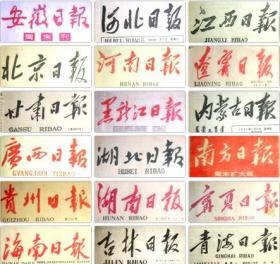 安徽日報
周末刊
河北日报
HEBEI RIBAO
江西日报
JIANGXI RIBAO
北京日报
河南日報
HENAN RIBAO
遼寧日報
LIAONING RIBAO
甘肃日報
GANSU RIBAO
黑龙江日報
内蒙古日報
廣西日報
GVANGJSIH YIZBAO
湖北日報
HUBEI RIBAO
南方日報
周末扩大版
貴州日報
GUIZHOU RIBAO
湖南日报
HUNAN RIBAO
寧夏日報
NINGXIA RIBAO
海南日報
吉林日報
JILIN RIBAO
青海日報
QINGHAI RIBAO